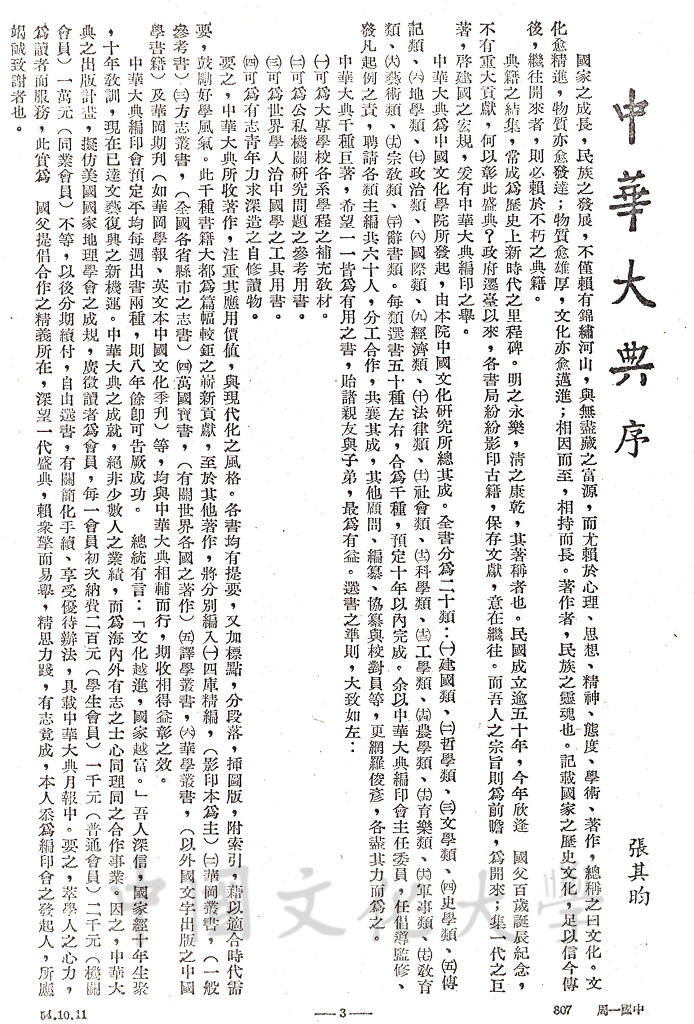 中華大典序
張其昀
國家之成長，民族之發展，不僅賴有錦繡河山，與無盡藏之富源，而尤賴於心理、思想、精神、態度、學術、著作，總稱之曰文化。文
化愈精進，物質亦愈發達；物質愈雄厚，文化亦愈邁進；相因而至，相持而長。著作者，民族之靈魂也。記載國家之歷史文化，足以信今傳
後，繼往開來者，則必賴於不朽之典籍。
典籍之結集，常成爲歷史上新時代之里程碑。明之永樂，清之康乾，其著稱者也。民國成立逾五十年，今年欣逢　國父百歲誕辰紀念，
不有重大貢獻，何以彰此盛典？政府遷臺以來，各書局紛紛影印古籍，保存文獻，意在繼往。而吾人之宗旨則爲前瞻，爲開來；集一代之巨
著，啓建國之宏規，爰有中華大典編印之舉。
中華大典爲中國文化學院所發起，由本院中國文化研究所總其成。全書分爲二十類：㈠建國類、㈡哲學類、㈢文學類、㈣史學類、㈤傳
記類、㈥地學類、㈦政治類、㈧國際類、㈨經濟類、㈩法律類、(十一)社會類、(十二)科學類、(十三)工學類、(十四)農學類、(十五)育樂類、(十六)軍事類、(十七)教育
類、(十八)藝術類、(十九)宗教類、(二十)辭書類。每類選書五十種左右，合爲千種，預定十年以內完成。余以中華大典編印會主任委員，任倡導監修、
發凡起例之責，聘請各類主編共六十人，分工合作，共襄其成，其他顧問、編纂、協纂與校對員等，更網羅俊彥，各盡其力而爲之。
中華大典千種巨著，希望一一皆爲有用之書，貽諸親友與子弟，最爲有益。選書之準則，大致如左：
㈠可爲大專學校各系學程之補充教材。
㈡可爲公私機關研究問題之參考用書。
㈢可爲世界學人治中國學之工具用書。
㈣可爲有志青年力求深造之自修讀物。
要之，中華大典所收著作，注重其應用價值，與現代化之風格。各書均有提要，又加標點，分段落，揷圖版，附索引，藉以適合時代需
要，鼓勵好學風氣。此千種書籍大都爲篇幅較鉅之嶄新貢獻，至於其他著作，將分別編入㈠四庫精編，（影印本爲主）㈡華岡叢書，（一般
參考書）㈢方志叢書，（全國各省縣市之志書）㈣萬國寶書，（有關世界各國之著作）㈤譯學叢書，㈥華學叢書，（以外國文字出版之中國
學書籍）及華岡期刊（如華岡學報、英文本中國文化季刊）等，均與中華大典相輔而行，期收相得益彰之效。
中華大典編印會預定平均每週出書兩種，則八年餘卽可告厥成功。　總統有言：「文化越進，國家越富。」吾人深信，國家經十年生聚
，十年教訓，現在已達文藝復興之新機運。中華大典之成就，絕非少數人之業績，而爲海內外有志之士心同理同之合作事業。因之，中華大
典之出版計畫，擬仿美國國家地理學會之成規，廣徵讀者爲會員，每一會員初次納費二百元（學生會員）一千元（普通會員）二千元（機關
會員）一萬元（同業會員）不等，以後分期續付，自由選書，有關簡化手續、享受優待辦法，具載中華大典月報中。要之，萃學人之心力，
爲讀者而服務，此實爲　國父提倡合作之精義所在，深望一代盛典，賴衆擎而易舉，精思力踐，有志竟成，本人忝爲編印會之發起人，所應
竭誠致謝者也。
中國文化大學
54.10.11
—3—
807
中國一周